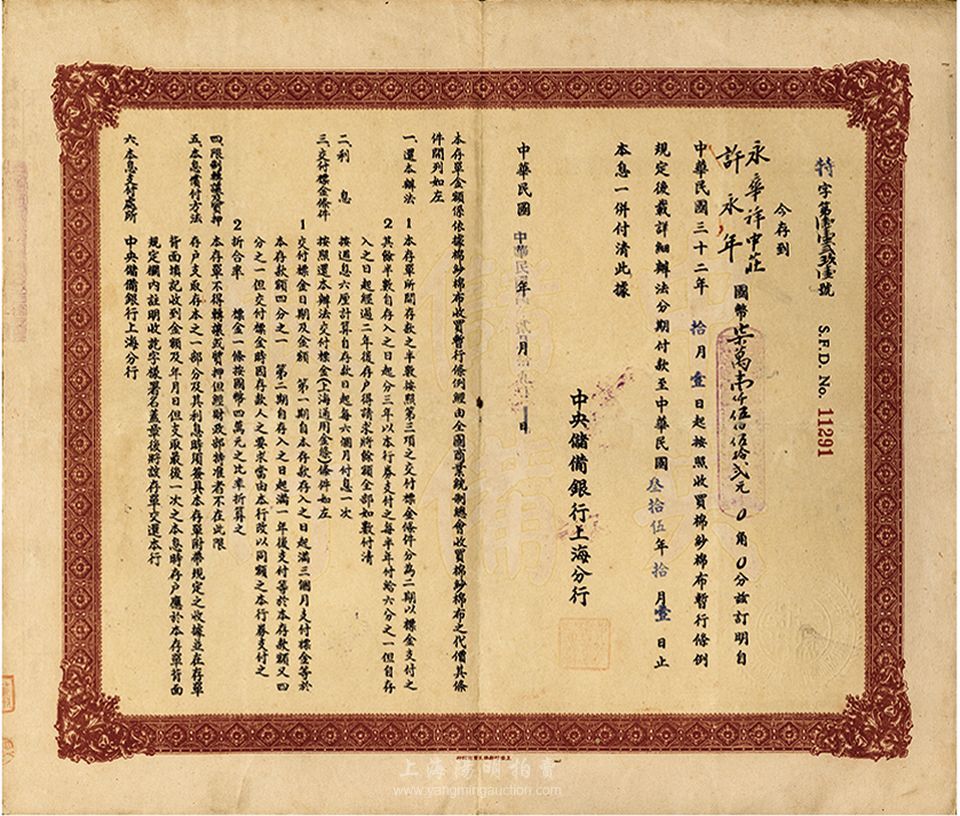 特字第壹壹貳玖壹號 S.F.D. No. 11291
今存到
永華祥中莊
許永年
國幣柒萬壹仟伍佰伍拾貳元0角0分訂明自
中華民國三十二年拾月壹日起按照收買棉紗棉布暫行條例
規定後載詳細辦法分期付款至中華民國叁拾伍年拾月壹日止
本息一併付清此據
中央儲備銀行上海分行
中華民國 年 月 日
本存單金額係依據棉紗棉布收買暫行條例經由全國商業統制總會收買棉紗棉布之代價其條
件開列如左
一、還本辦法 1 本存單所開存款之半數按照第三項之交付標金條件分為二期以標金支付之
2 其餘半數自存入之日起分三年以本行券支付之每半年付給六分之一但自存
入之日起經過二年後存戶得請求將餘額全部如數付清
二、利息 按週息六厘計算自存款日起每六個月付息一次
三、交付標金條件 按照還本辦法交付標金(上海通用金條)條件如左
1 交付標金日期及金額 第一期自本存款存入之日起滿三個月支付標金等於
本存款額四分之一 第二期自存入之日起滿一年後支付等於本存款額又四
分之一但交付標金時因存款人之要求當由本行改以同額之本行券支付之
2 折合率 標金一條按國幣四萬元之比率折算之
四、限制轉讓及質押 本存單不得轉讓或質押但經財政部特准者不在此限
五、本息備付方法 存戶支取存本之一部分及其利息時須簽具本存單附帶規定之收據並在存單
背面填記收到金額及年月日但支取最後一次之本息時存戶應於本存單背面
規定欄內註明收訖字樣署名蓋章後將該存單交還本行
六、本息支付處所 中央儲備銀行上海分行
上海陽明拍賣
www.yangmingauction.com